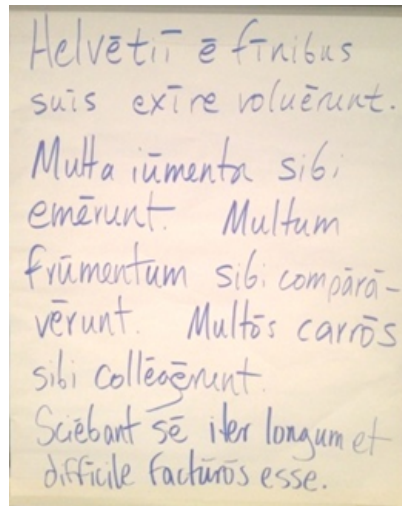 Helvētiī ē fīnibus
suīs exīre voluērunt.
Multa iūmenta sibi
emērunt. Multum
frūmentum sibi compārā-
vērunt. Multōs carrōs
sibi collēgērunt.
Sciēbant sē iter longum et
difficile factūrōs esse.